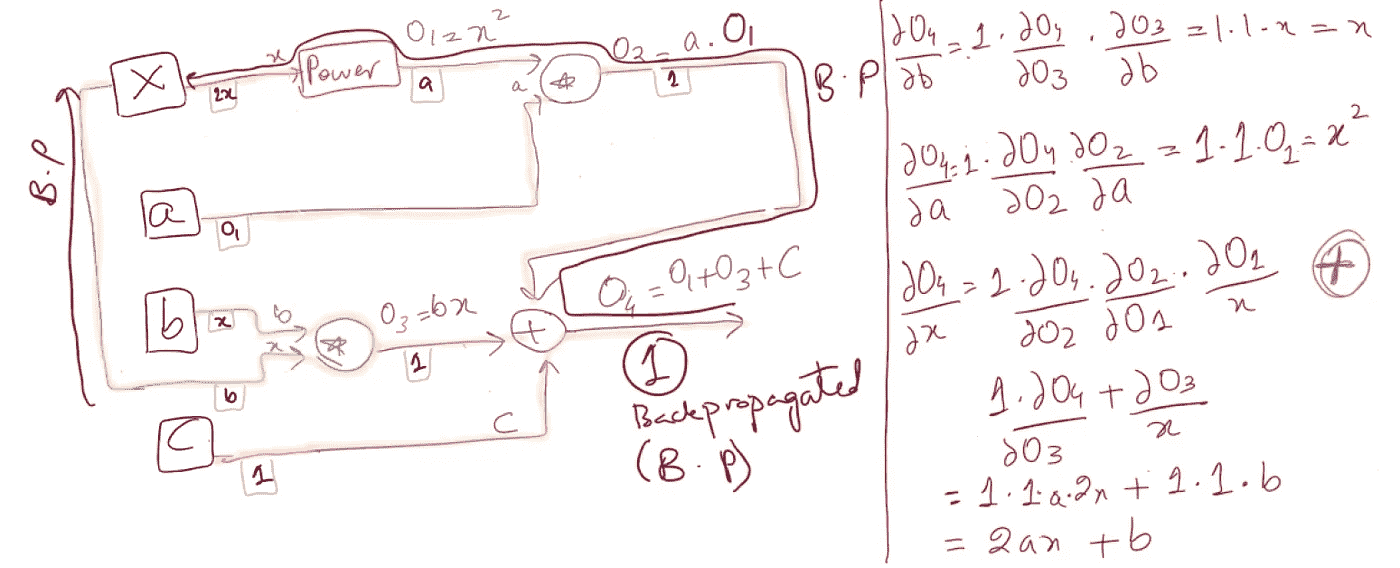 O₁ = x²
O₂ = a . O₁
x
X
2x
Power
a
a
*
1
B . P
B . P
a
O₁
b
x
b
x
*
O₃ = bx
1
b
+
O₄ = O₁ + O₃ + C
1
Backpropagated
(B . P)
C
C
1
∂O₄/∂b = 1 . ∂O₄/∂O₃ . ∂O₃/∂b = 1 . 1 . x = x
∂O₄/∂a = 1 . ∂O₄/∂O₂ ∂O₂/∂a = 1 . 1 . O₁ = x²
∂O₄/∂x = 1 . ∂O₄/∂O₂ . ∂O₂/∂O₁ . ∂O₁/x +
1 . ∂O₄/∂O₃ + ∂O₃/x
= 1 . 1 . a . 2x + 1 . 1 . b
= 2ax + b